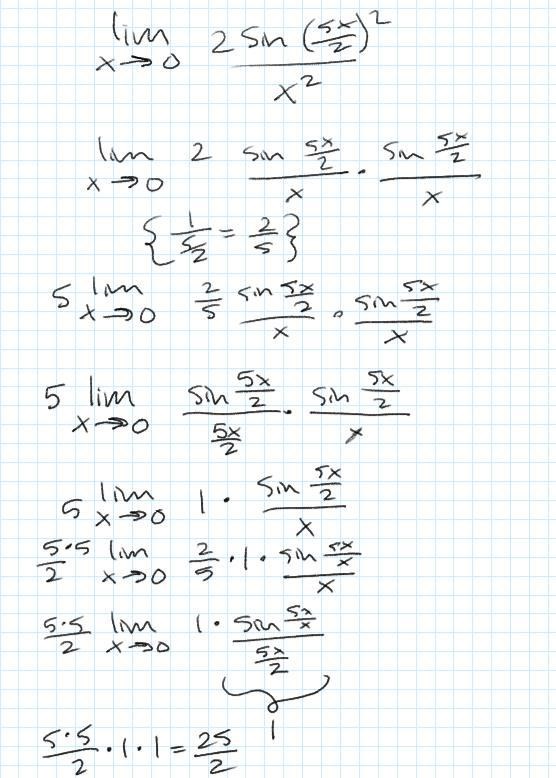 lim x→0 2 sin (5x/2)² / x²
lim x→0 2 sin 5x/2 / x · sin 5x/2 / x
{ 1 / 5/2 = 2/5 }
5 lim x→0 2/5 sin 5x/2 / x · sin 5x/2 / x
5 lim x→0 sin 5x/2 / 5x/2 · sin 5x/2 / x
5 lim x→0 1 · sin 5x/2 / x
5·5/2 lim x→0 2/5 · 1 · sin 5x/x / x
5·5/2 lim x→0 1 · sin 5x/x / 5x/2
1
5·5/2 · 1 · 1 = 25/2